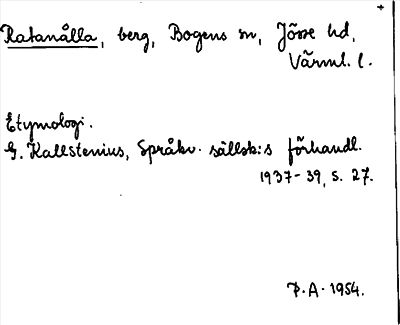 +
Ratanålla, berg, Bogens sn, Jösse hd,
Värml. l.
Etymologi.
G. Kallstenius, Språkv. sällsk:s förhandl.
1937-39, s. 27.
P.A. 1954.